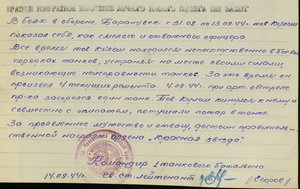 КРАТКОЕ КОНКРЕТНОЕ ИЗЛОЖЕНИЕ ЛИЧНОГО БОЕВОГО ПОДВИГА ИЛИ ЗАСЛУГ
В боях в обороне с 31.08. по 13.09.44г. тов. Кулеш
показал себя, как смелого и отважного офицера.
Всё время тов. Кулеш находился непосредственно в боевых
порядках танков, устранял на месте своими силами,
возникающие неисправности танков. За это время он
произвел 4 текущих ремонта. 4.09.44г. при арт. обстреле
пр-ка загорелся один танк. Тов. Кулеш кинулся к нему и
совместно с экипажем, потушили пожар в танке.
За проявленное мужество и отвагу, достоин правитель-
ственной награды ордена "Красная звезда"
Командир 1 танкового батальона
14.09.44г. гв. ст. лейтенант